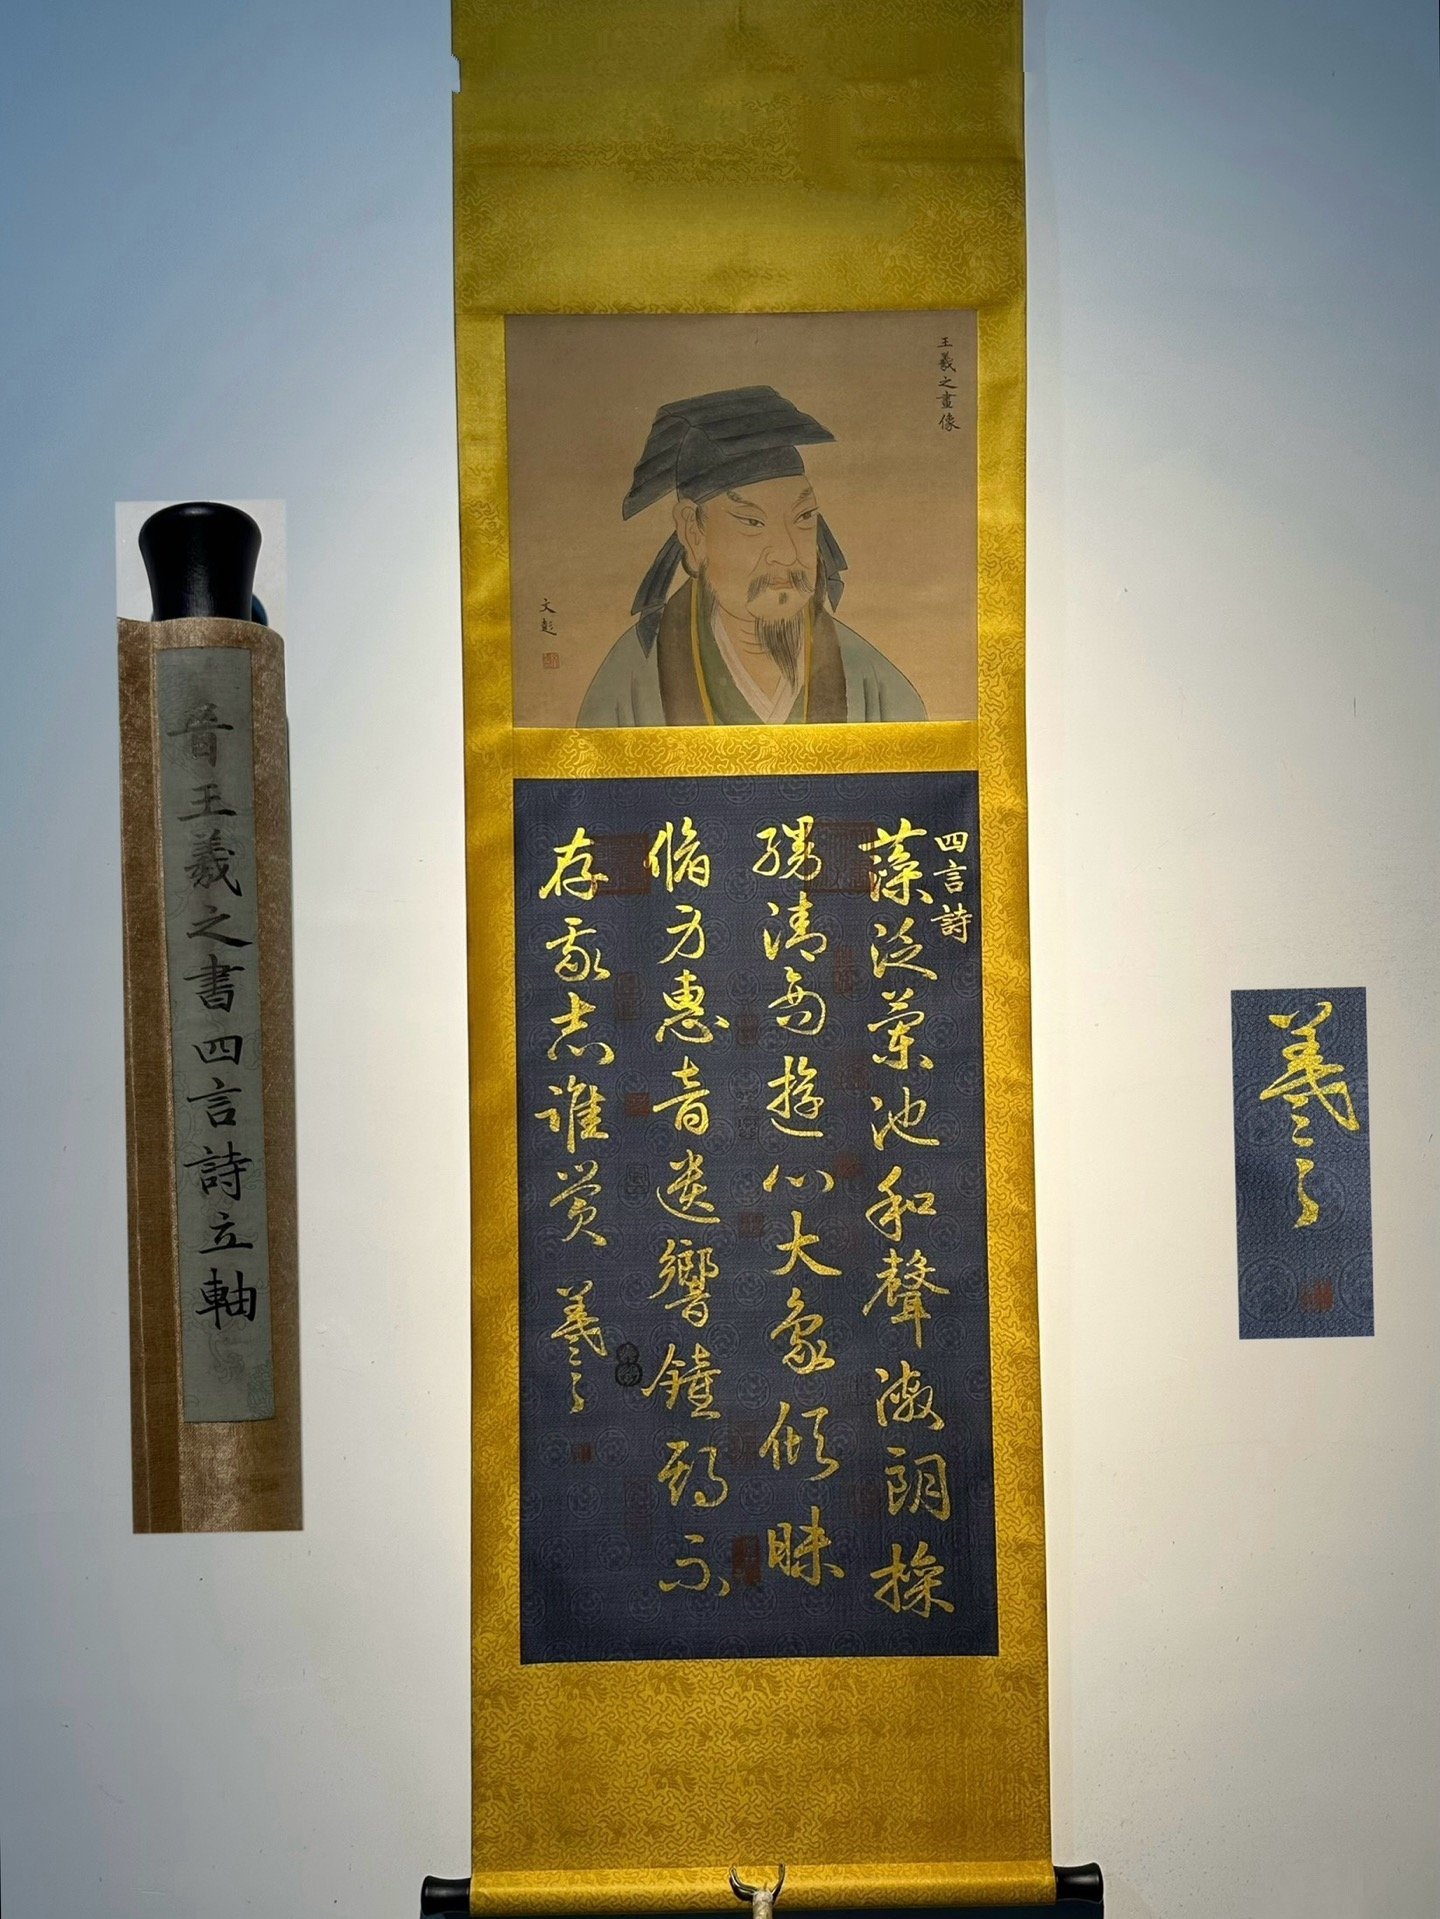 王羲之畫像
文彭
四言詩
藻泛蘭池和聲激朗操
縵清商遊心大象傾昧
脩身惠音遺響鐘期不
存我志誰賞 羲之
晉王羲之書四言詩立軸
羲之